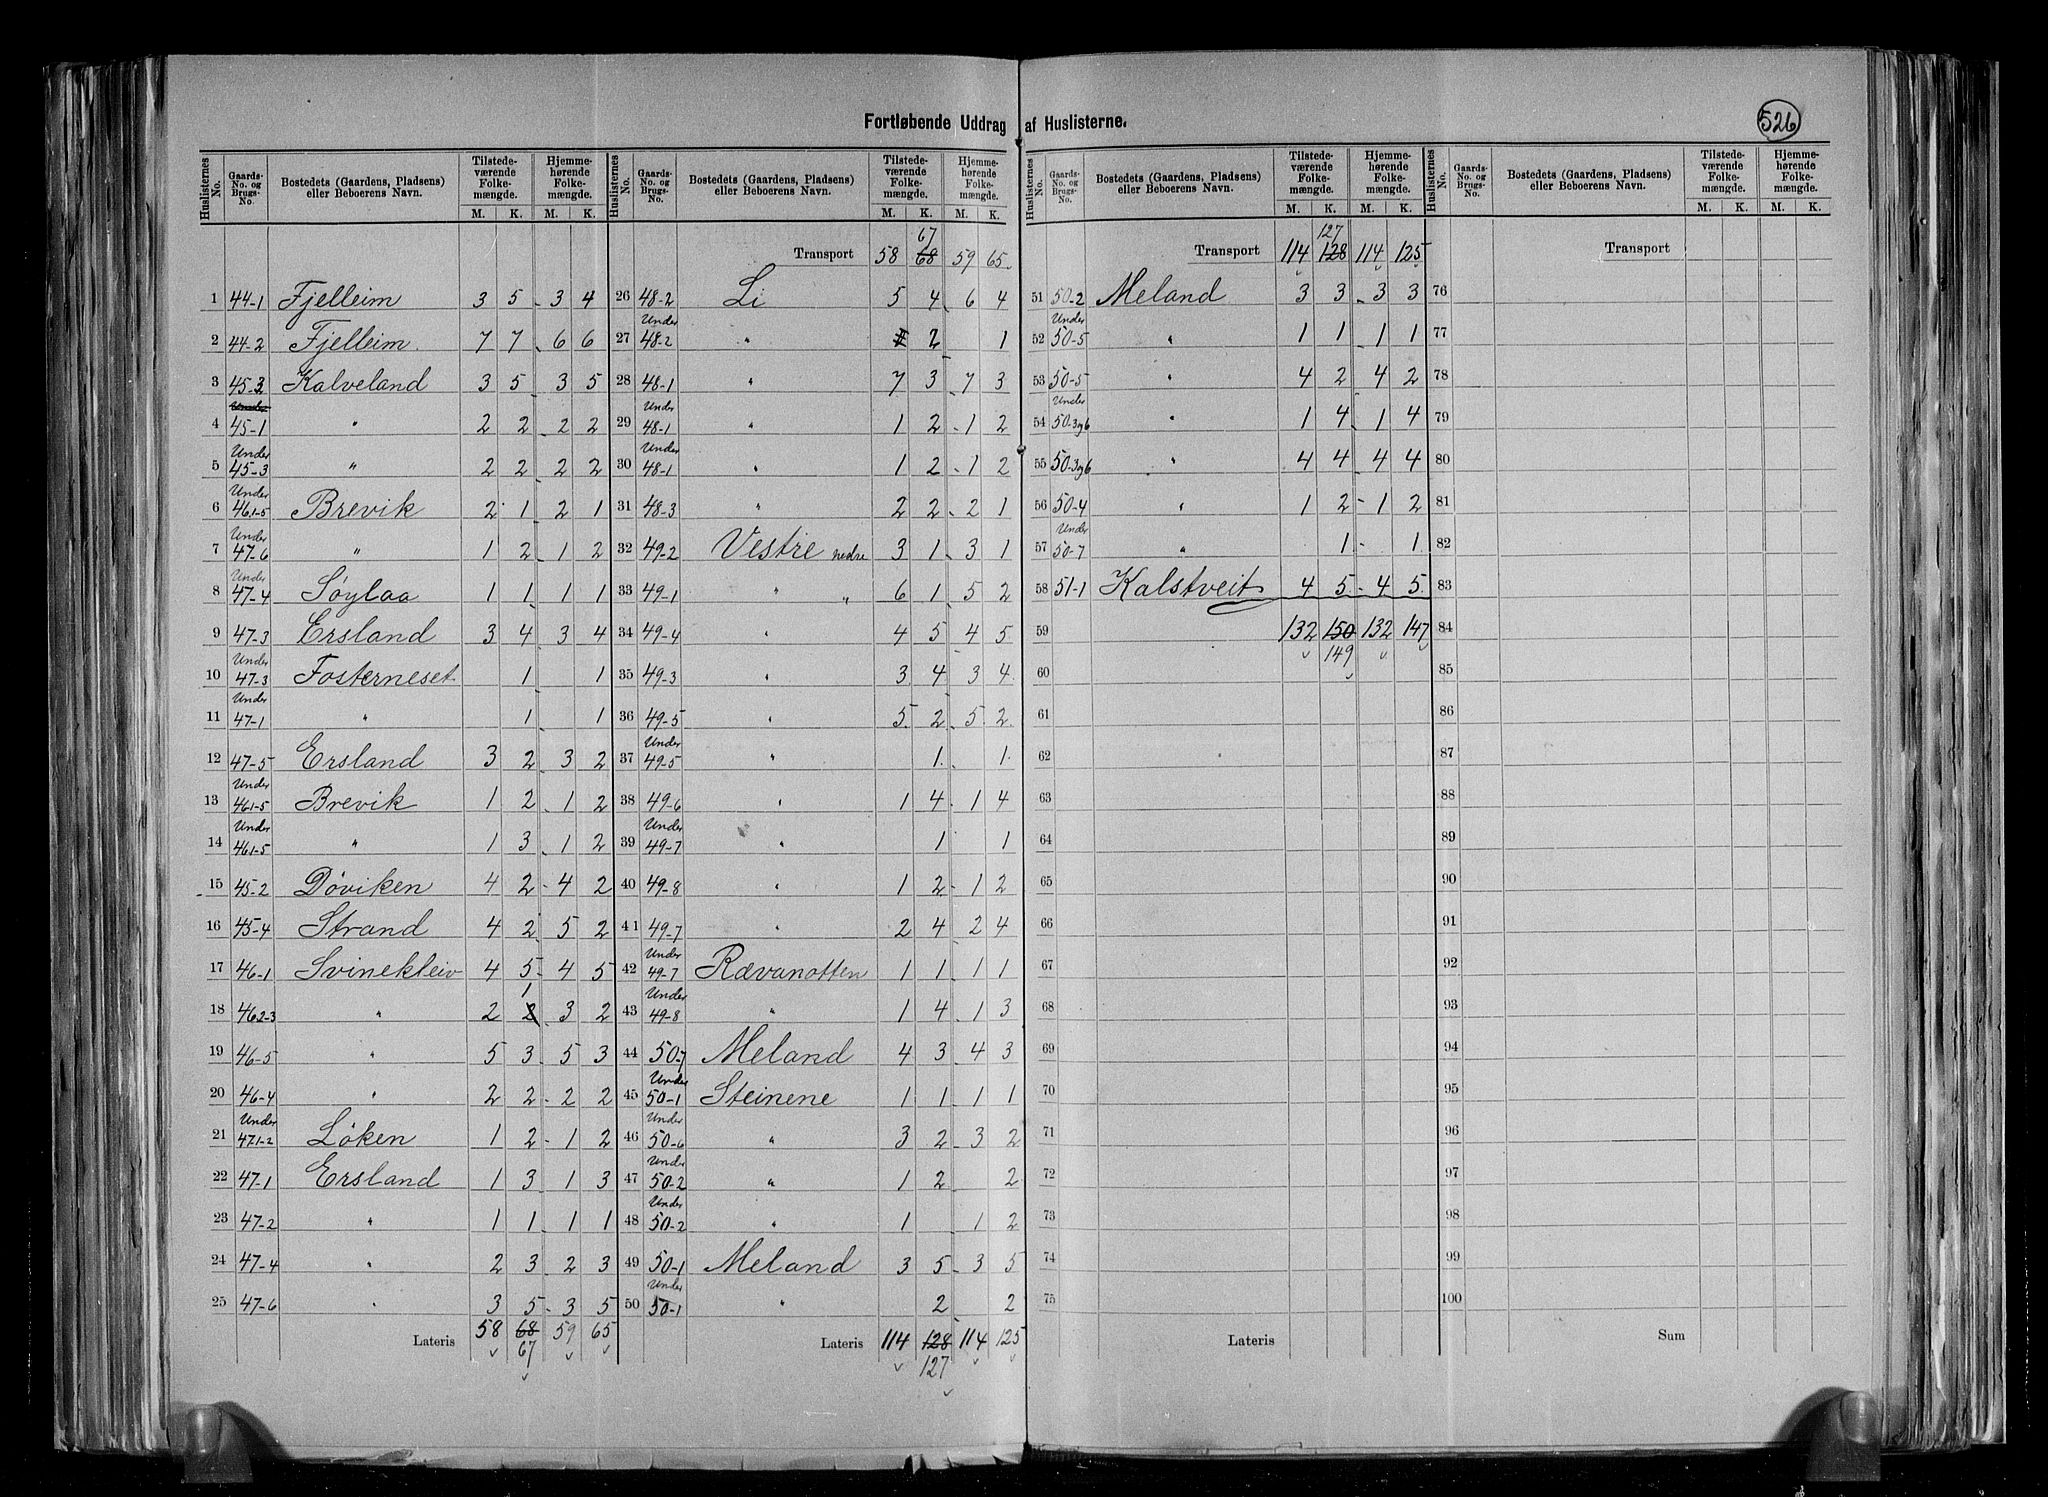 Fortløbende Uddrag af Huslisterne.
526
Huslisternes No. | Gaards-No. og Brugs-No. | Bostedets (Gaardens, Pladsens) eller Beboerens Navn. | Tilstedeværende Folkemængde. M. K. | Hjemmehørende Folkemængde. M. K.
1 44-1 Fjelleim 3 5 3 4
2 44-2 Fjelleim 7 7 6 6
3 45-3 Kalveland 3 5 3 5
4 Under 45-1 " 2 2 2 2
5 Under 45-3 " 2 2 2 2
6 Under 46.1-5 Brevik 2 1 2 1
7 Under 47-6 " 1 2 1 2
8 Under 47-4 Søylaa 1 1 1 1
9 47-3 Ersland 3 4 3 4
10 Under 47-3 Fosterneset 1 1
11 Under 47-1 " 1 1
12 47-5 Ersland 3 2 3 2
13 Under 46.1-5 Brevik 1 2 1 2
14 Under 46.1-5 " 1 3 1 2
15 45-2 Døviken 4 2 4 2
16 45-4 Strand 4 2 5 2
17 46-1 Svinekleiv 4 5 4 5
18 46.2-3 " 2 2 1 3 2
19 46-5 " 5 3 5 3
20 46-4 " 2 2 2 2
21 Under 47.1-2 Løken 1 2 1 2
22 47-1 Ersland 1 3 1 3
23 47-2 " 1 1 1 1
24 47-4 " 2 3 2 3
25 47-6 " 3 5 3 5
Lateris 58 68 59 65
67
Huslisternes No. | Gaards-No. og Brugs-No. | Bostedets (Gaardens, Pladsens) eller Beboerens Navn. | Tilstedeværende Folkemængde. M. K. | Hjemmehørende Folkemængde. M. K.
67
Transport 58 68 59 65
26 48-2 Li 5 4 6 4
27 Under 48-2 " 2 1
28 48-1 " 7 3 7 3
29 Under 48-1 " 1 2 1 2
30 Under 48-1 " 1 2 1 2
31 48-3 " 2 2 2 1
32 49-2 Vestre nedre 3 1 3 1
33 49-1 " " 6 1 5 2
34 49-4 " 4 5 4 5
35 49-3 " 3 4 3 4
36 49-5 " 5 2 5 2
37 Under 49-5 " 1 1
38 49-6 " 1 4 1 4
39 Under 49-7 " 1 1
40 49-8 " 1 2 1 2
41 49-7 " 2 4 2 4
42 Under 49-7 Rævanotten 1 1 1 1
43 Under 49-8 " 1 4 1 3
44 50-7 Meland 4 3 4 3
45 Under 50-1 Steinene 1 1 1 1
46 Under 50-6 " 3 2 3 2
47 Under 50-2 " 1 2 2
48 Under 50-2 " 1 1 2
49 50-1 Meland 3 5 3 5
50 Under 50-1 " 2 2
Lateris 114 128 114 125
127
Huslisternes No. | Gaards-No. og Brugs-No. | Bostedets (Gaardens, Pladsens) eller Beboerens Navn. | Tilstedeværende Folkemængde. M. K. | Hjemmehørende Folkemængde. M. K.
127
Transport 114 128 114 125
51 50-2 Meland 3 3 3 3
52 Under 50-5 " 1 1 1 1
53 50-5 " 4 2 4 2
54 Under 50-3og6 " 1 4 1 4
55 50-3og6 " 4 4 4 4
56 50-4 " 1 2 1 2
57 Under 50-7 " 1 1
58 51-1 Kalstveit 4 5 4 5
59 132 150 132 147
149
60
61
62
63
64
65
66
67
68
69
70
71
72
73
74
75
Lateris
Huslisternes No. | Gaards-No. og Brugs-No. | Bostedets (Gaardens, Pladsens) eller Beboerens Navn. | Tilstedeværende Folkemængde. M. K. | Hjemmehørende Folkemængde. M. K.
Transport
76
77
78
79
80
81
82
83
84
85
86
87
88
89
90
91
92
93
94
95
96
97
98
99
100
Sum